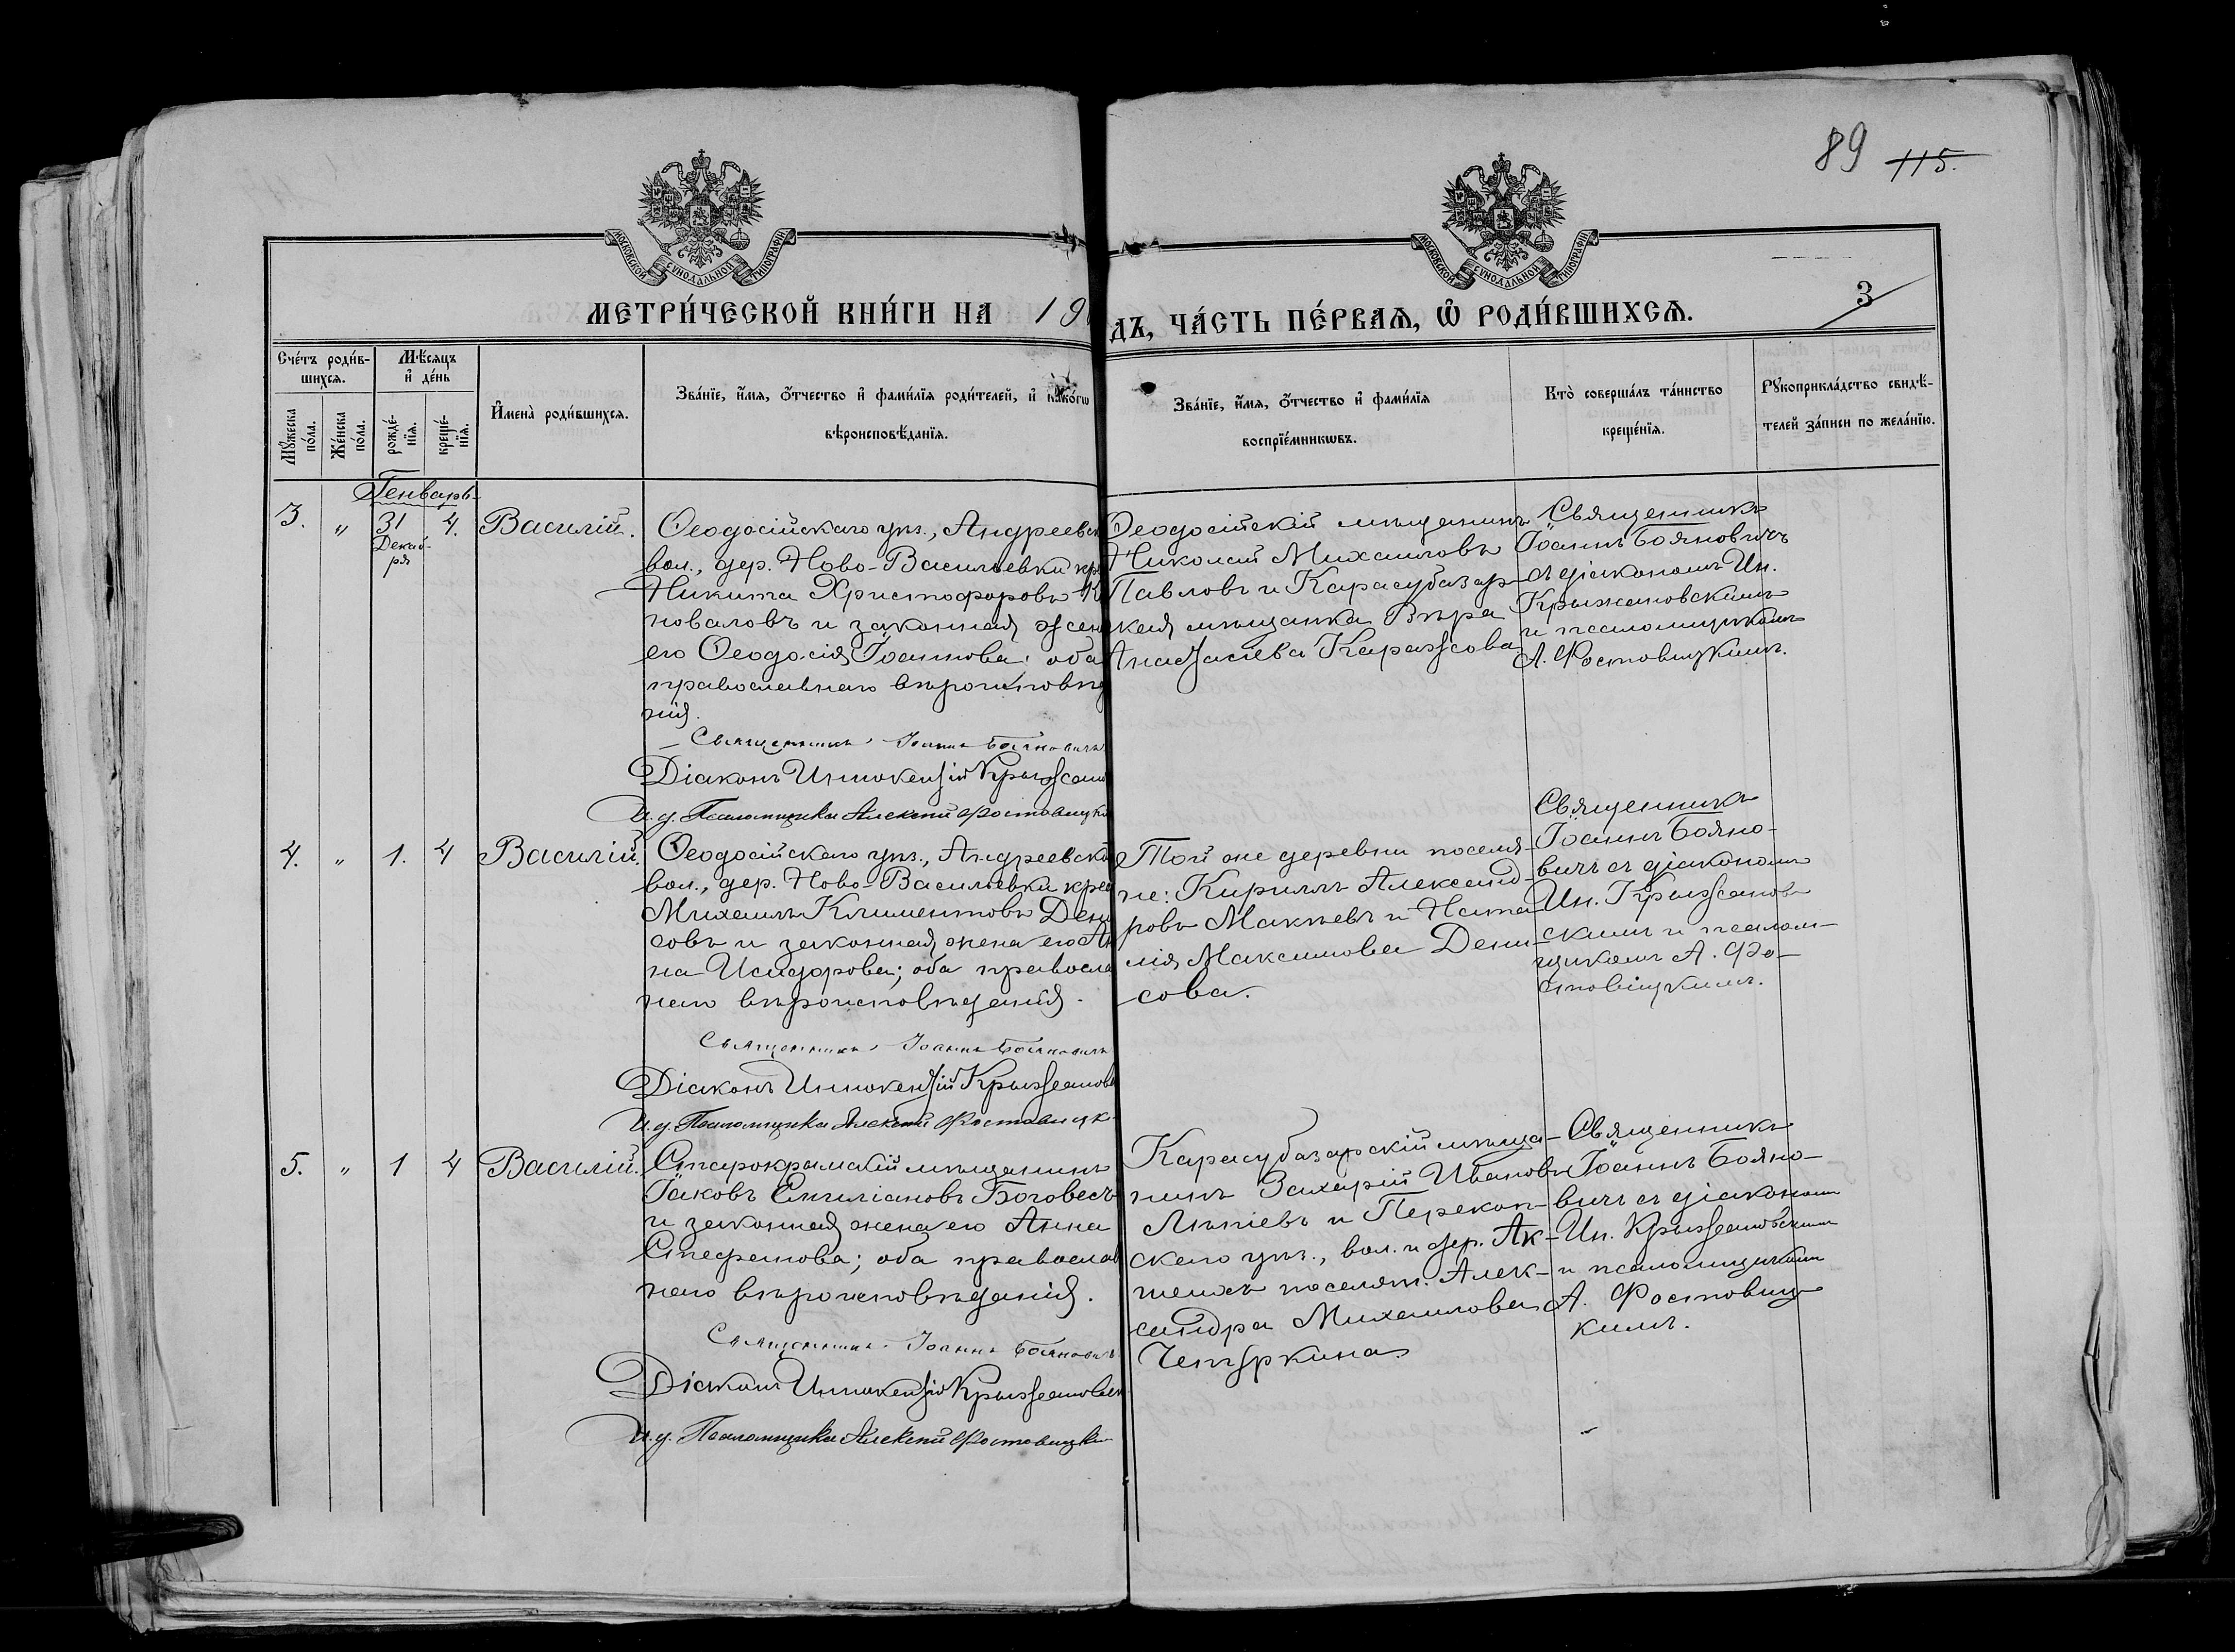 89 115.
МОСКОВСКОЙ СѴНОДАЛЬНОЙ ТИПОГРАФІИ
МОСКОВСКОЙ СѴНОДАЛЬНОЙ ТИПОГРАФІИ
МЕТРИ́ЧЕСКОЙ КНИ́ГИ НА 19
ДЪ, ЧА́СТЬ ПЕ́РВАѦ, Ѽ РОДИ́ВШИХСѦ.
3
Сче́тъ роди́в-
шихсѧ.
Мѣ́сяцъ
и҆ де́нь
Мꙋ́жеска
по́ла.
Же́нска
по́ла.
рожде́-
нїѧ.
креще́-
нїѧ.
И҆мена̀ роди́вшихсѧ.
Зва́нїе, и҆́мѧ, ѻ҆́тчество и҆ фами́лїѧ роди́телей, и҆ како́гѡ
вѣроисповѣ́данїѧ.
Зва́нїе, и҆́мѧ, ѻ҆́тчество и҆ фами́лїѧ
воспрїе́мникѡвъ.
Кто̀ соверша́лъ та́инство
креще́нїѧ.
Рꙋкоприкла́дство свидѣ́-
телей за́писи по жела́нїю.
Генварь
3. " 31 Декаб-
ря 4. Василій.
Ѳеодосійскаго уѣз., Андреевск
вол., дер. Ново-Васильевки кр
Никита Христофоровъ К
новаловъ и законная жен
его Ѳеодосія Іоаннова; оба
православнаго вѣроисповѣд
нія.
Священникъ Іоаннъ Бояновичъ
Діаконъ Иннокентій Крыжанов
И. д. Псаломщика Алексій Фостовицкі
Ѳеодосійскій мѣщанинъ
Николай Михаиловъ
Павловъ и Карасубазар-
ская мѣщанка Вѣра
Анастасіева Каражсова
Священникъ
Іоаннъ Бояновичъ
съ діакономъ Ин.
Крыжановскимъ
и псаломщикомъ
А. Фостовицкимъ.
4. " 1. 4 Василій.
Ѳеодосійскаго уѣз., Андреевско
вол., дер. Ново-Васильевки крес
Михаилъ Климентовъ Дени
совъ и законная жена его Ан
на Исидорова; оба правосла
наго вѣроисповѣданія.
Священникъ Іоаннъ Бояновичъ
Діаконъ Иннокентій Крыжанов
И. д. Псаломщика Алексій Фостовицк
Той же деревни поселя-
не: Кириллъ Александ-
ровъ Макѣевъ и Ната-
лія Максимова Дени-
сова.
Священникъ
Іоаннъ Бояно-
вичъ съ діакономъ
Ин. Крыжанов-
скимъ и псалом-
щикомъ А. Фо-
стовицкимъ.
5. " 1 4 Василій.
Старокрымскій мѣщанинъ
Іаковъ Емиліановъ Боговесъ
и законная жена его Анна
Стефанова; оба православ
наго вѣроисповѣданія.
Священникъ Іоаннъ Бояновичъ
Діаконъ Иннокентій Крыжановск
И. д. Псаломщика Алексій Фостовицкі
Карасубазарскій мѣща-
нинъ Захарій Ивановъ
и Перекоп-
скаго уѣз., вол. и дер. Ак-
шеихъ поселян. Алек-
сандра Михаилова
Четыркина
Священникъ
Іоаннъ Бояно-
вичъ съ діакономъ
Ин. Крыжановскимъ
и псаломщикомъ
А. Фостовиц-
кимъ.